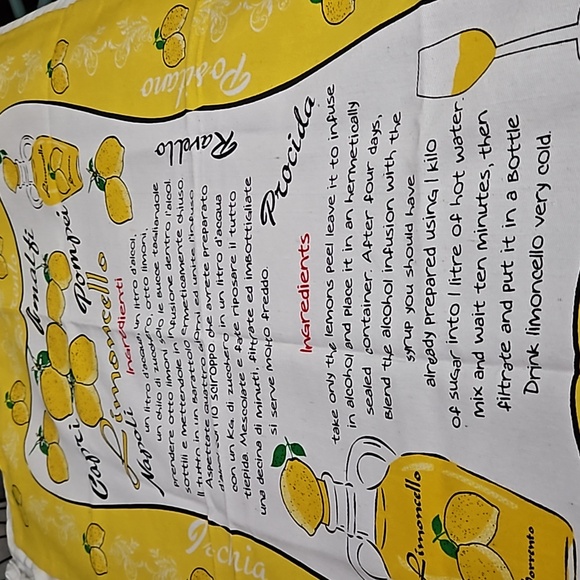 Positano
Ravello
Procida
Amalfi
Pompei
Capri
Limoncello
Napoli
Ingredienti
un litro d'acqua, un litro d'alcol,
un chilo di zucchero, otto limoni,
prendere otto limoni solo le bucce tagliandole
sottili e mettendole in infusione con l'alcol.
Il tutto in un barattolo ermeticamente chiuso.
Aspettate quattro giorni ed unite l'infuso
lo sciroppo che avrete preparato
con un kg. di zucchero in un litro d'acqua
tiepida. Mescolate e fate riposare il tutto
una decina di minuti, filtrate ed imbottigliate
si serve molto freddo.
Ingredients
take only the lemons peel leave it to infuse
in alcohol and place it in an hermetically
sealed container. After four days,
Blend the alcohol infusion with, the
syrup you should have
already prepared using 1 kilo
of sugar into 1 litre of hot water.
mix and wait ten minutes, then
filtrate and put it in a bottle
Drink limoncello very cold.
Limoncello
Limoncello